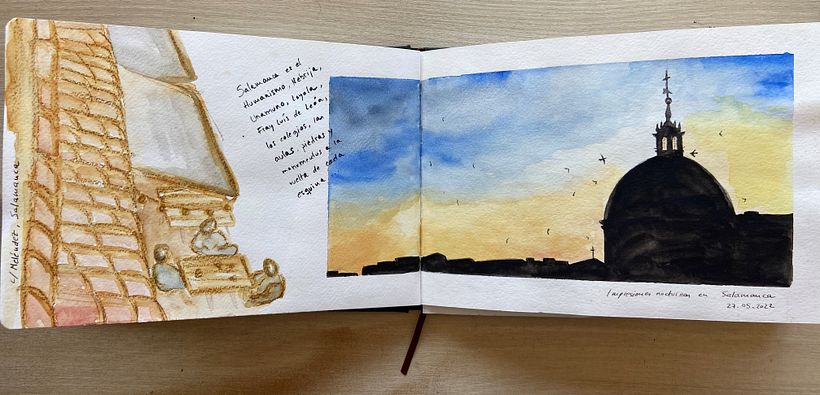 c/ Meléndez, Salamanca
Salamanca es el
Humanismo, Nebrija,
Unamuno, Loyola,
Fray Luis de León,
los colegios, las
aulas, piedras y
monumentos a la
vuelta de cada
esquina
Impresiones nocturnas en Salamanca
27.05.2022